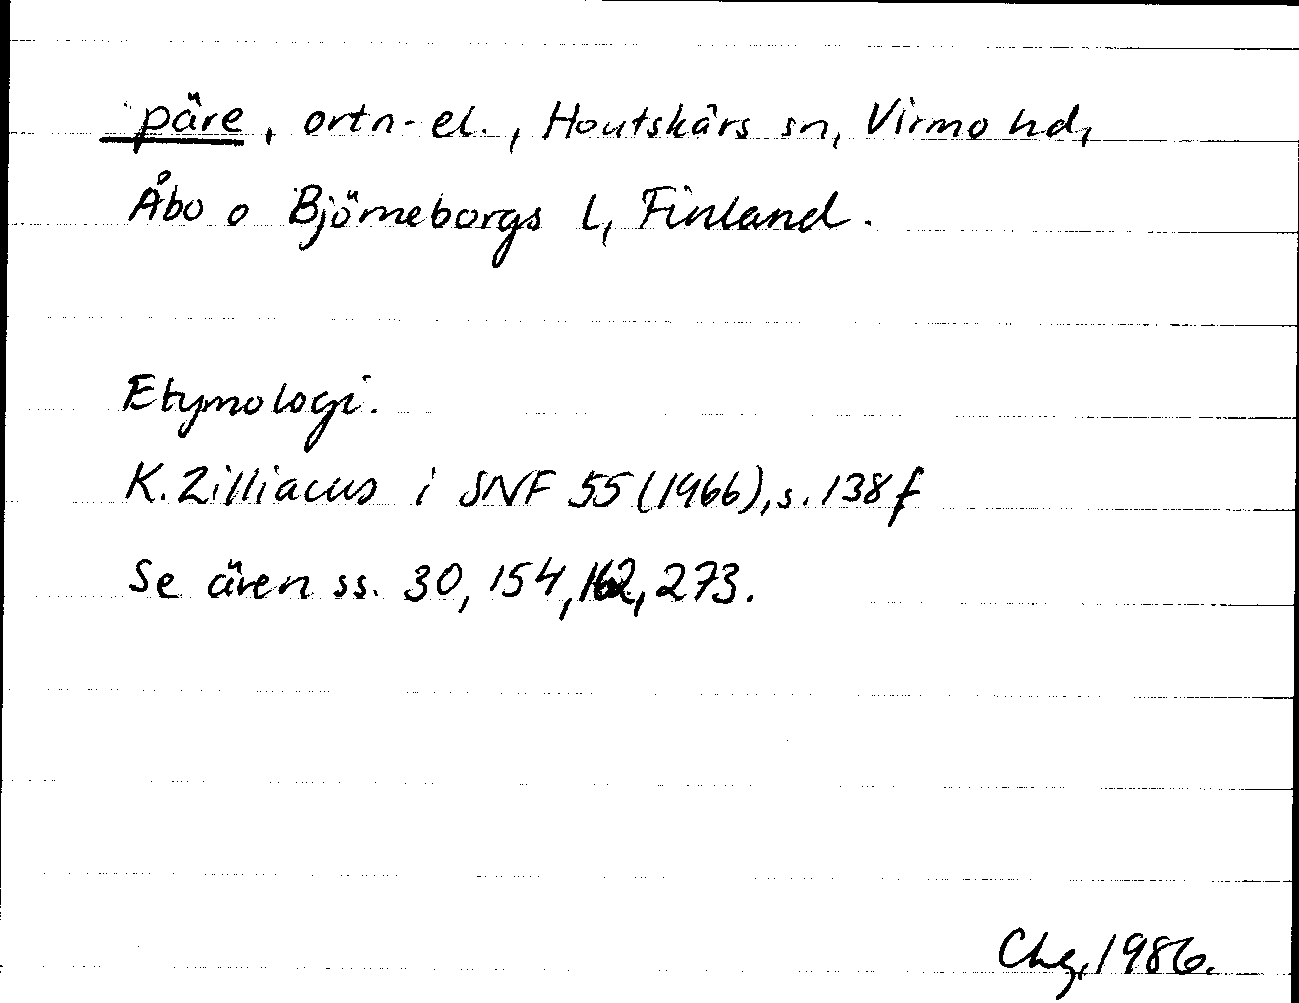 päre, ortn-el., Houtskärs sn, Virmo hd,
Åbo o Björneborgs l, Finland.
Etymologi.
K. Zilliacus i SNF 55 (1966), s. 138 f
Se även ss. 30, 154, 162, 273.
Chg, 1986.